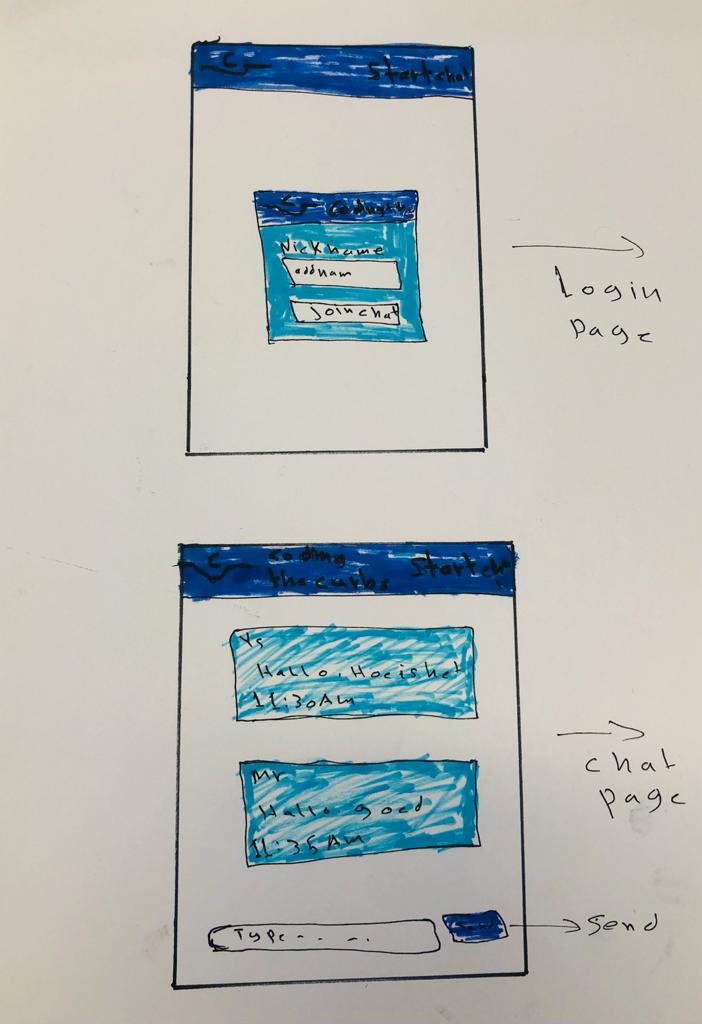 C
Start chat
C
Nickname
addnam
Join chat
Login
page
C
coding
the curbs
Start
Ys
Hallo, Hoe is het
11:30AM
Mr
Hallo goed
11:35AM
chat
page
Type - - - .
Send
Send